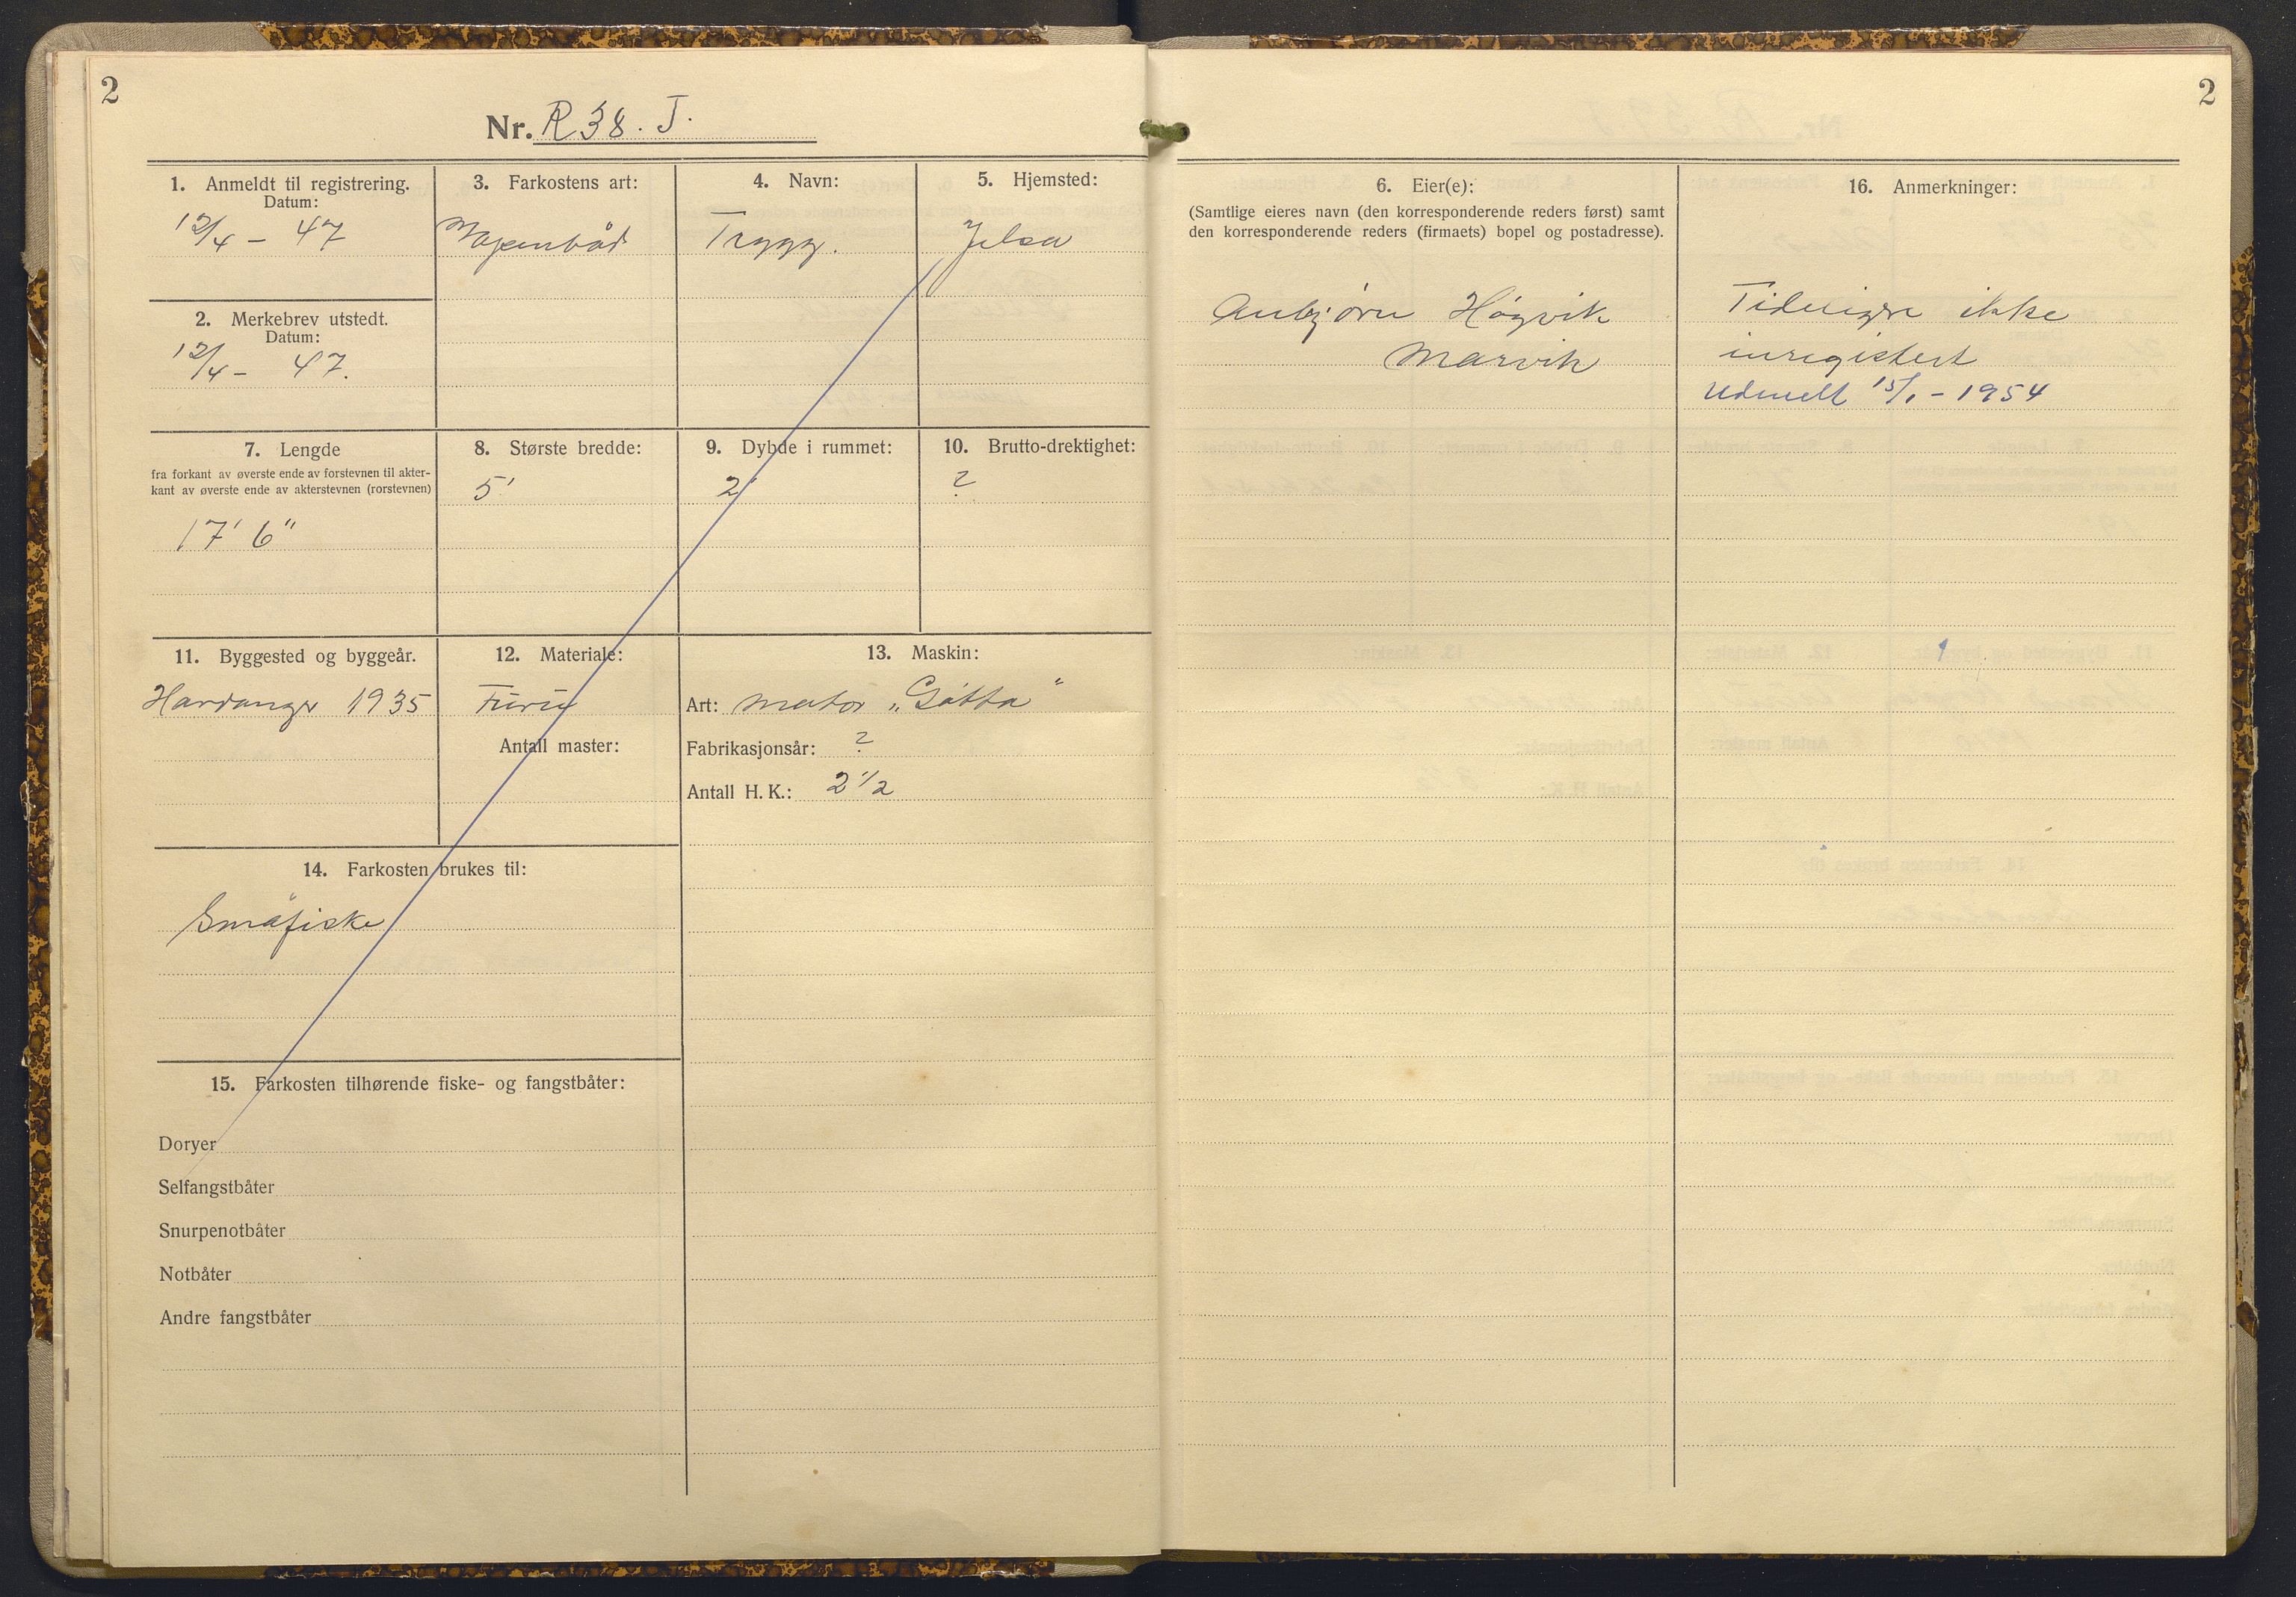 2
Nr. R 38. J.
1. Anmeldt til registrering.
Datum:
12/4 - 47
2. Merkebrev utstedt.
Datum:
12/4 - 47.
3. Farkostens art:
4. Navn:
Trygg.
5. Hjemsted:
Jelsa
7. Lengde
fra forkant av øverste ende av forstevnen til akter-
kant av øverste ende av akterstevnen (rorstevnen)
17' 6"
8. Største bredde:
5'
9. Dybde i rummet:
2'
10. Brutto-drektighet:
?
11. Byggested og byggeår.
Hardanger 1935
12. Materiale:
Furu
Antall master:
13. Maskin:
Art: motor „Götta"
Fabrikasjonsår: ?
Antall H. K.: 2 1/2
14. Farkosten brukes til:
Småfiske
15. Farkosten tilhørende fiske- og fangstbåter:
Doryer
Selfangstbåter
Snurpenotbåter
Notbåter
Andre fangstbåter
2
6. Eier(e):
(Samtlige eieres navn (den korresponderende reders først) samt
den korresponderende reders (firmaets) bopel og postadresse).
Anbjørn Høgvik
Marvik
16. Anmerkninger:
Tidligere ikke
inregistert
Udmelt 15/1 - 1954